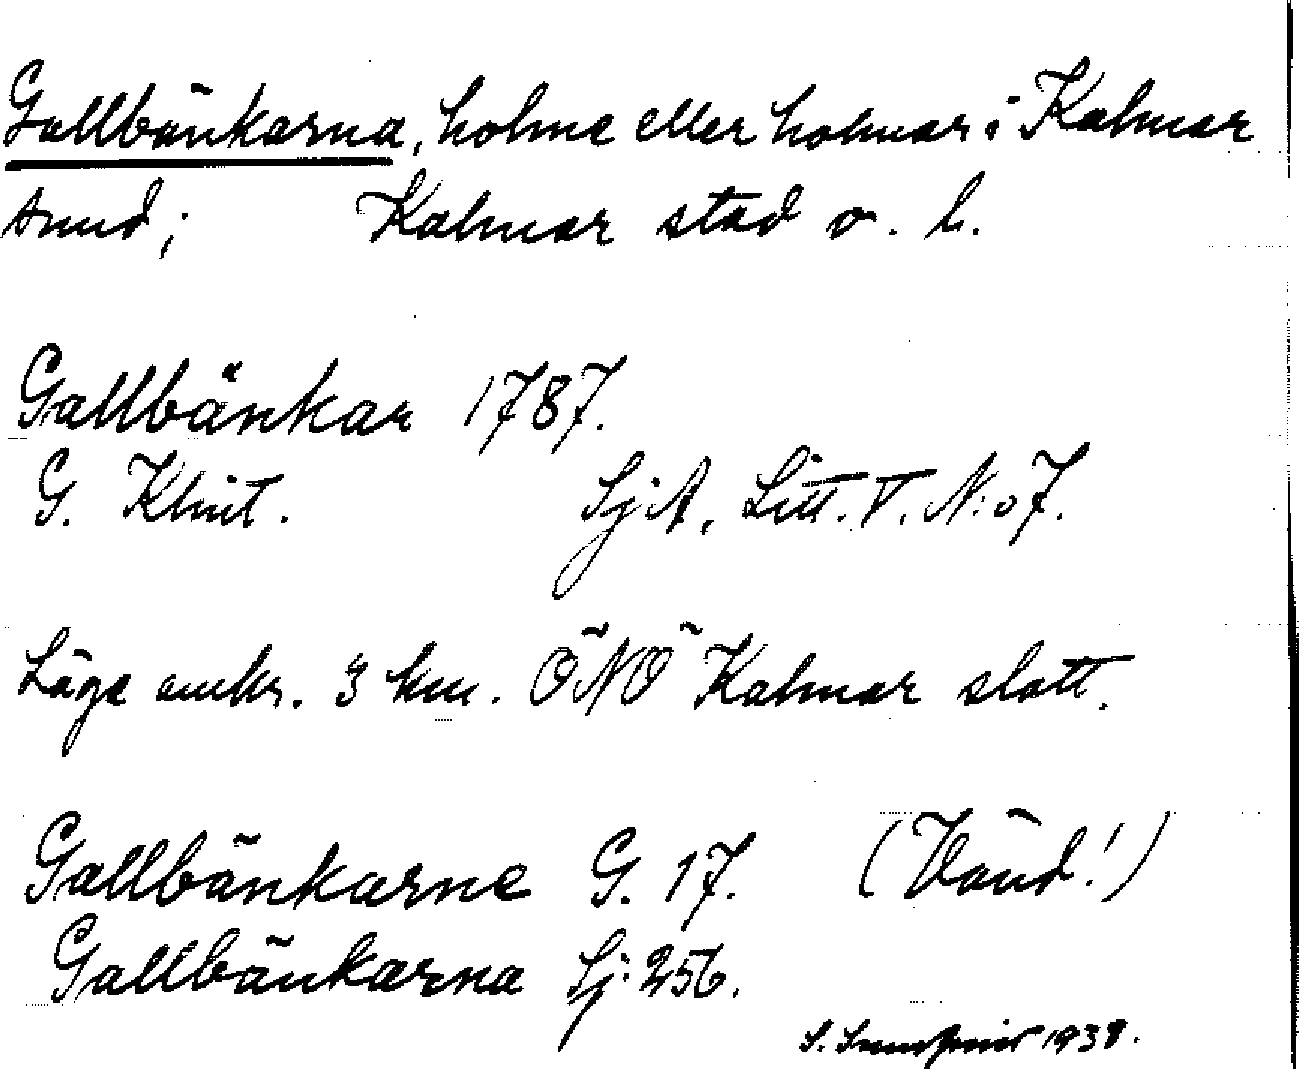 Gallbänkarna, holme eller holmar i Kalmar
sund; Kalmar stad o. l.
Gallbänkar 1787.
G. Klint. SjA, Litt. V. N:o 7.
Läge omkr. 3 km. ÖNÖ Kalmar slott.
Gallbänkarne G. 17. (Vänd!)
Gallbänkarna Sj: 256.
S. 1938.